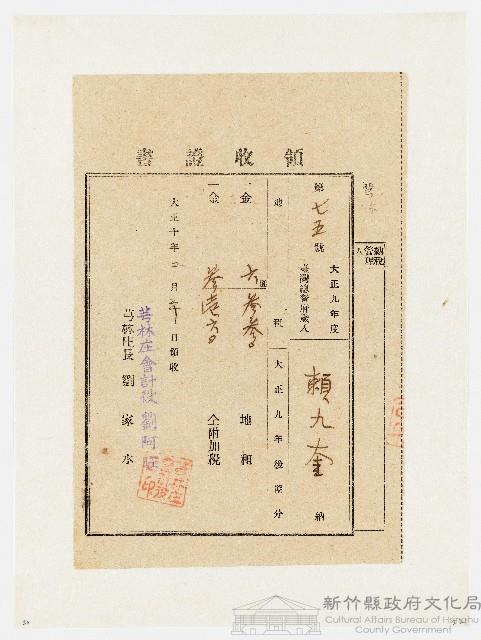 領收證書
第七五號
大正九年度
臺灣總督府歲入
地租
大正九年後期分
賴九奎 納
一金 六 地租
一金 仝附加稅
大正十年 月 日領收
芎林庄會計役 劉阿
芎林庄長 劉家水
納稅管理人
新竹縣政府文化局
Cultural Affairs Bureau of Hsinchu
County Government